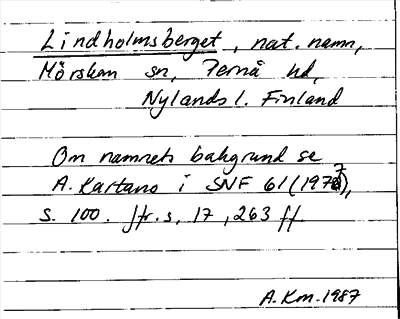 Lindholmsberget, nat. namn,
Mörskom sn, Pernå hd,
Nylands l. Finland
Om namnets bakgrund se
A. Kartano i SNF 61 (1977),
s. 100. Jfr. s, 17, 263 ff.
A. Km. 1987